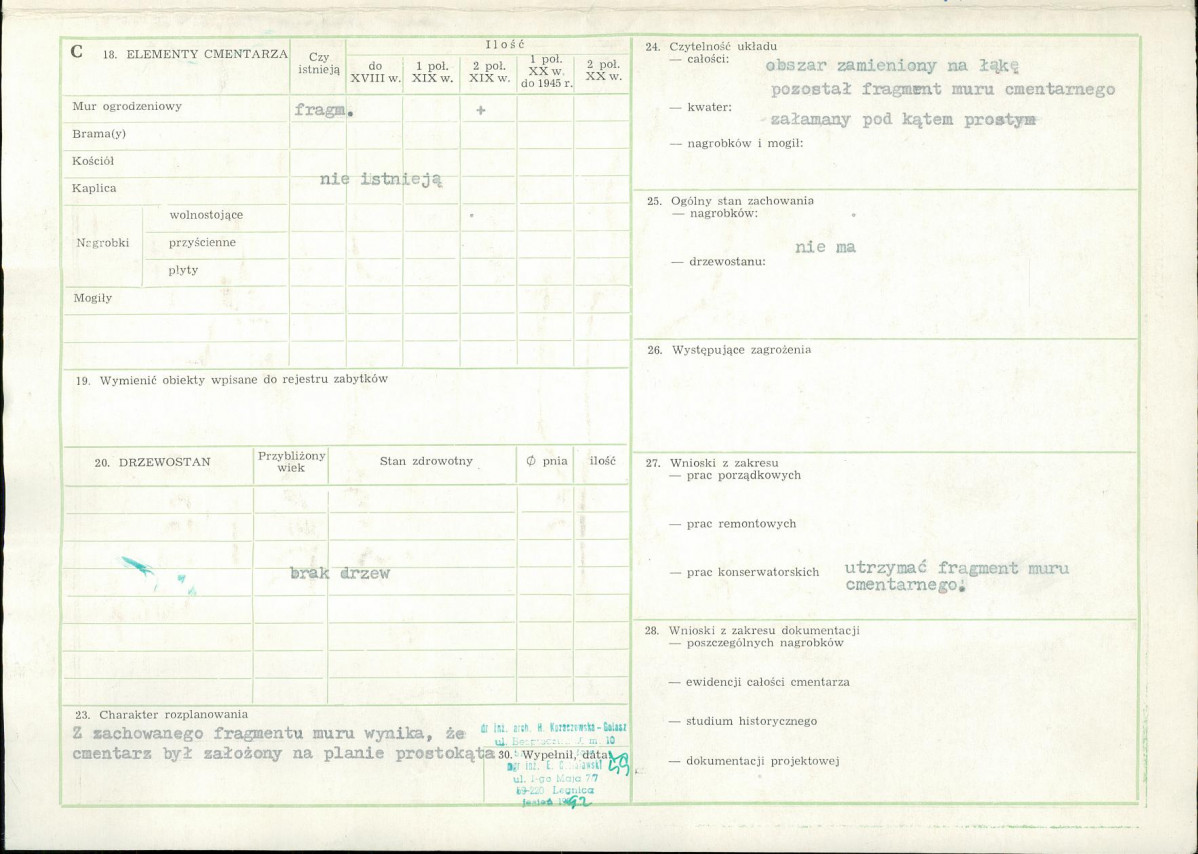 C 18. ELEMENTY CMENTARZA
Czy istnieją
Ilość
do XVIII w.
1 poł. XIX w.
2 poł. XIX w.
1 poł. XX w. do 1945 r.
2 poł. XX w.
Mur ogrodzeniowy fragm. +
Brama(y)
Kościół
nie istnieją
Kaplica
Nagrobki
wolnostojące
przyścienne
płyty
Mogiły
19. Wymienić obiekty wpisane do rejestru zabytków
20. DRZEWOSTAN
Przybliżony wiek
Stan zdrowotny
Ø pnia
ilość
brak drzew
23. Charakter rozplanowania
Z zachowanego fragmentu muru wynika, że
cmentarz był założony na planie prostokąta
dr inż. arch. H.
ul. m. 10
30. Wypełnił, data
mgr inż. E.
ul. 1-go Maja 7/7
59-220 Legnica
jesień
24. Czytelność układu
— całości:
obszar zamieniony na łąkę
pozostał fragment muru cmentarnego
— kwater:
załamany pod kątem prostym
— nagrobków i mogił:
25. Ogólny stan zachowania
— nagrobków:
nie ma
— drzewostanu:
26. Występujące zagrożenia
27. Wnioski z zakresu
— prac porządkowych
— prac remontowych
— prac konserwatorskich utrzymać fragment muru
cmentarnego.
28. Wnioski z zakresu dokumentacji
— poszczególnych nagrobków
— ewidencji całości cmentarza
— studium historycznego
— dokumentacji projektowej